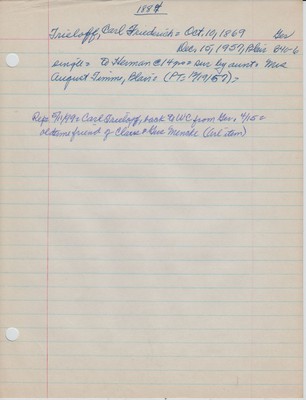 1884
Trieloff, Carl Friederich = Oct. 10, 1869 Ger
Dec. 15, 1957, Blair
single = to Herman @ 14 yrs = sur by aunt = Mrs
August Timme, Blair = (PT: 12/19/57) =
Rep. = Carl Trieloff, back to WC from Ger. 4/15 =
oldtime friend of Claus & Geo Mencke (Arl item)